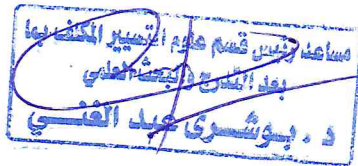 مساعد رئيس قسم علوم التسيير المكلف بما
بعد التدرج والبحث العلمي
د. بوشرى عبد الغني